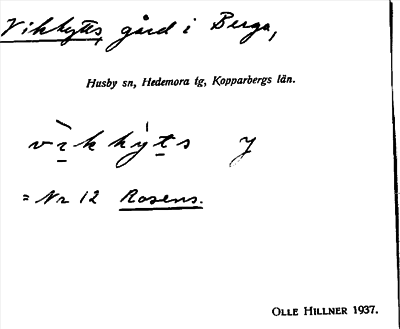 Vikkytts, gård i Berga,
Husby sn, Hedemora tg, Kopparbergs län.
vi̠̇̀k ky̍t̠s y
= Nr 12 Rosens.
OLLE HILLNER 1937.